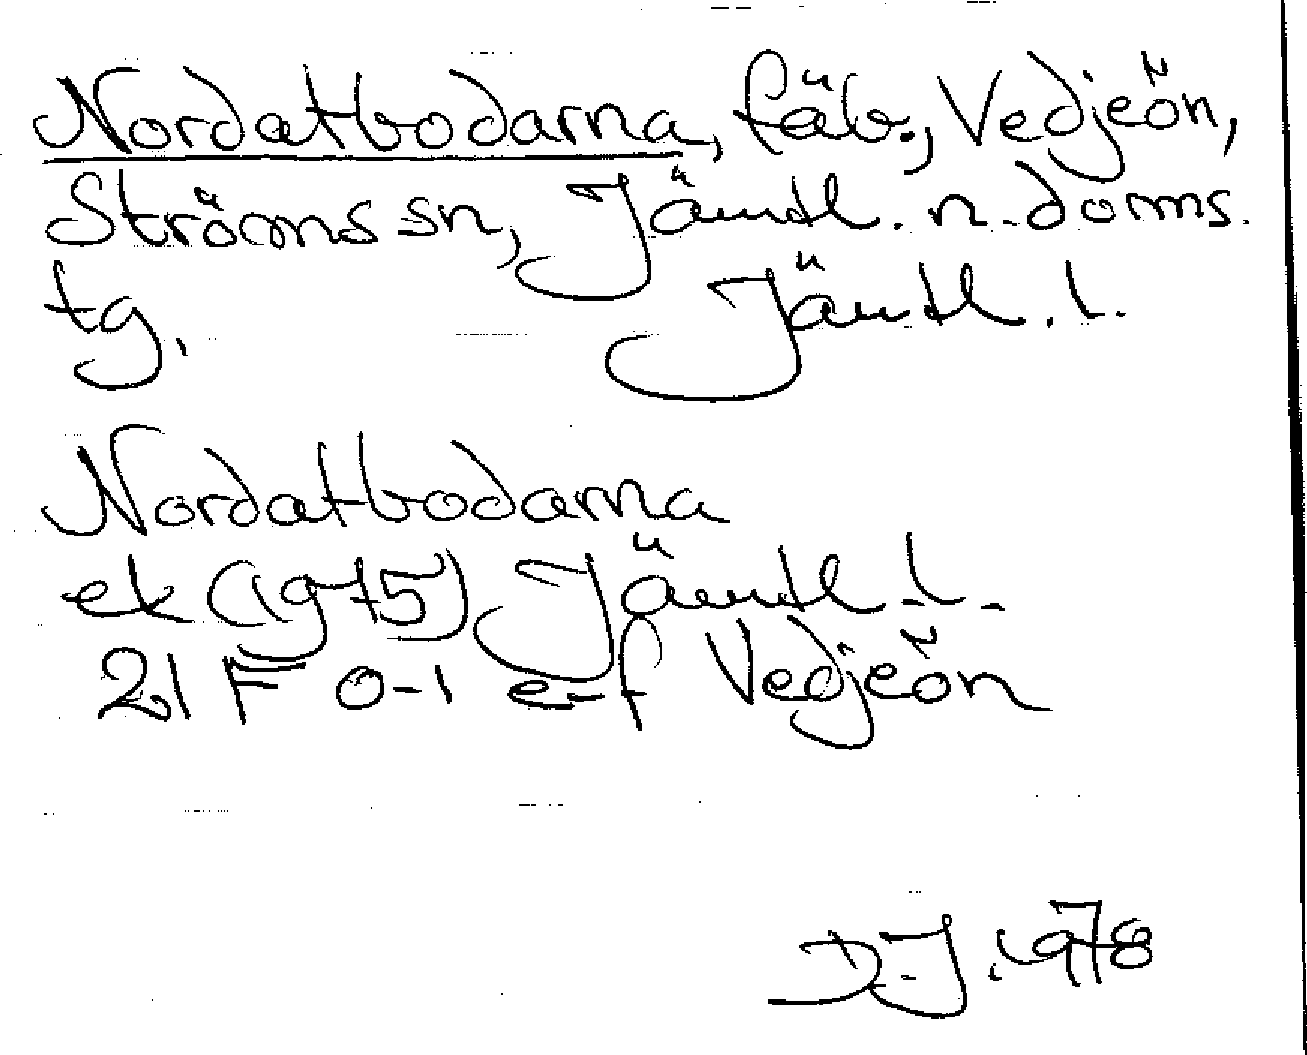 Nordatbodarna, fäb., Vedjeön,
Ströms sn, Jämtl. n. doms.
tg. Jämtl. l.
Nordatbodarna
ek (1975) Jämtl. l.
21 F 0-1 e-f Vedjeön
D.J. 1978